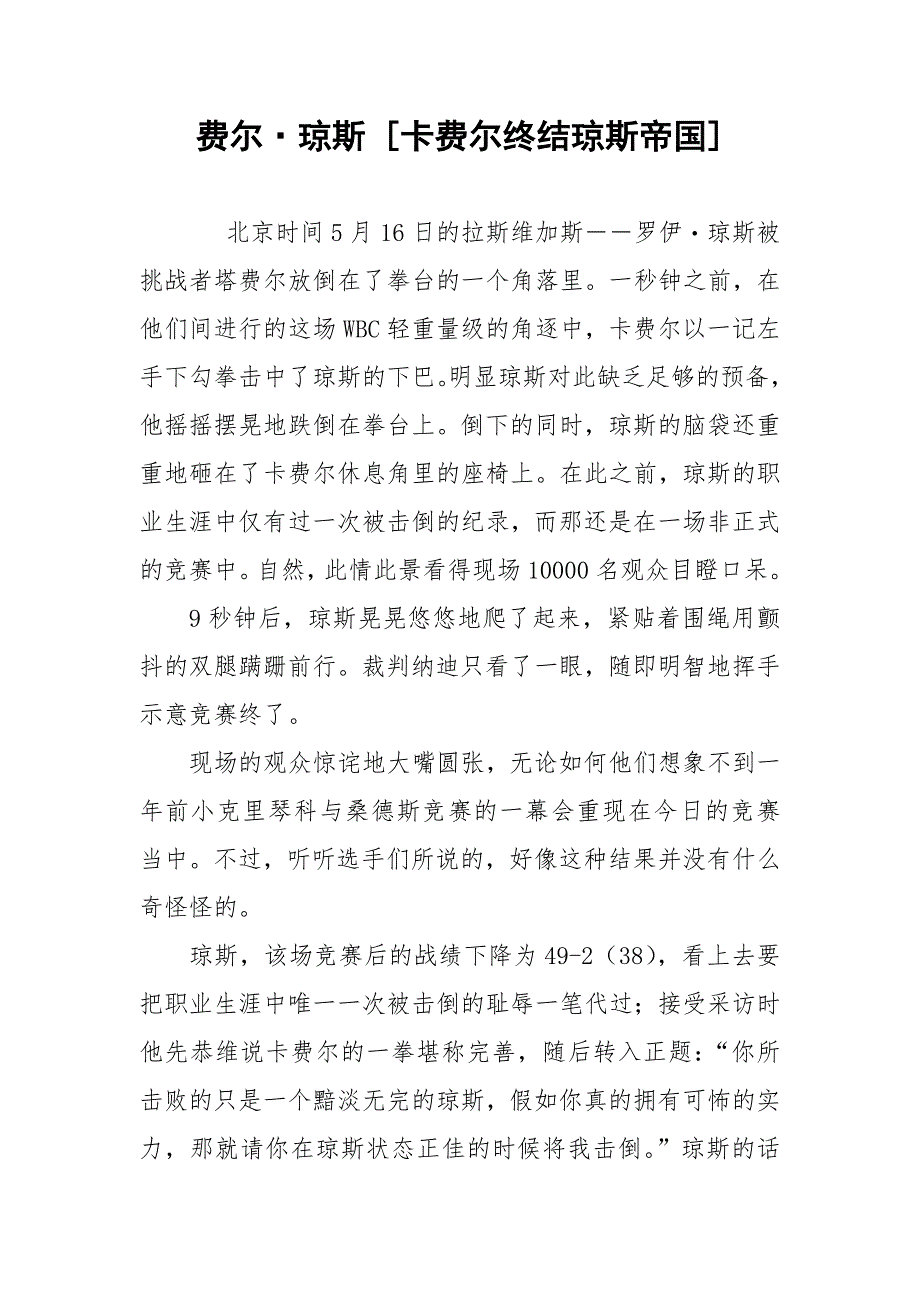 费尔·琼斯 [卡费尔终结琼斯帝国]
北京时间5月16日的拉斯维加斯――罗伊·琼斯被
挑战者塔费尔放倒在了拳台的一个角落里。一秒钟之前，在
他们间进行的这场WBC轻重量级的角逐中，卡费尔以一记左
手下勾拳击中了琼斯的下巴。明显琼斯对此缺乏足够的预备，
他摇摇摆晃地跌倒在拳台上。倒下的同时，琼斯的脑袋还重
重地砸在了卡费尔休息角里的座椅上。在此之前，琼斯的职
业生涯中仅有过一次被击倒的纪录，而那还是在一场非正式
的竞赛中。自然，此情此景看得现场10000名观众目瞪口呆。
9秒钟后，琼斯晃晃悠悠地爬了起来，紧贴着围绳用颤
抖的双腿蹒跚前行。裁判纳迪只看了一眼，随即明智地挥手
示意竞赛终了。
现场的观众惊诧地大嘴圆张，无论如何他们想象不到一
年前小克里琴科与桑德斯竞赛的一幕会重现在今日的竞赛
当中。不过，听听选手们所说的，好像这种结果并没有什么
奇怪怪的。
琼斯，该场竞赛后的战绩下降为49-2（38），看上去要
把职业生涯中唯一一次被击倒的耻辱一笔代过；接受采访时
他先恭维说卡费尔的一拳堪称完善，随后转入正题：“你所
击败的只是一个黯淡无完的琼斯，假如你真的拥有可怖的实
力，那就请你在琼斯状态正佳的时候将我击倒。”琼斯的话